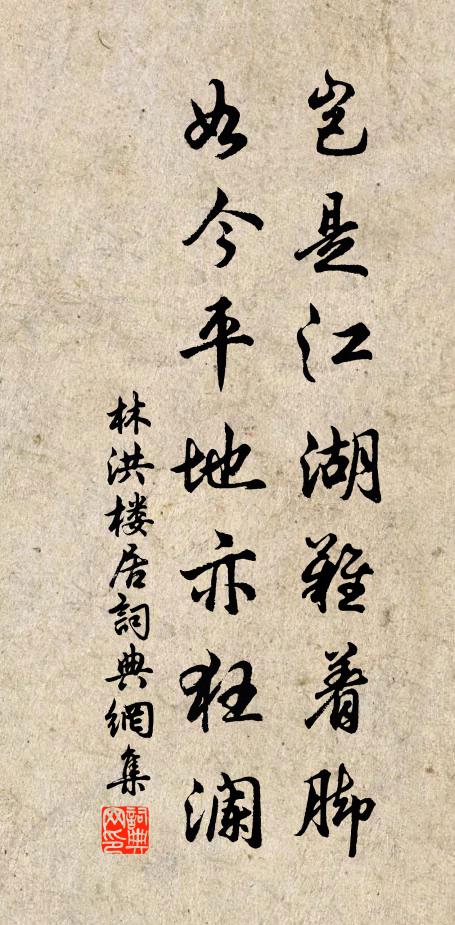 岂是江湖难着脚
如今平地亦狂澜
林洪楼居詞典網集
詞典网印